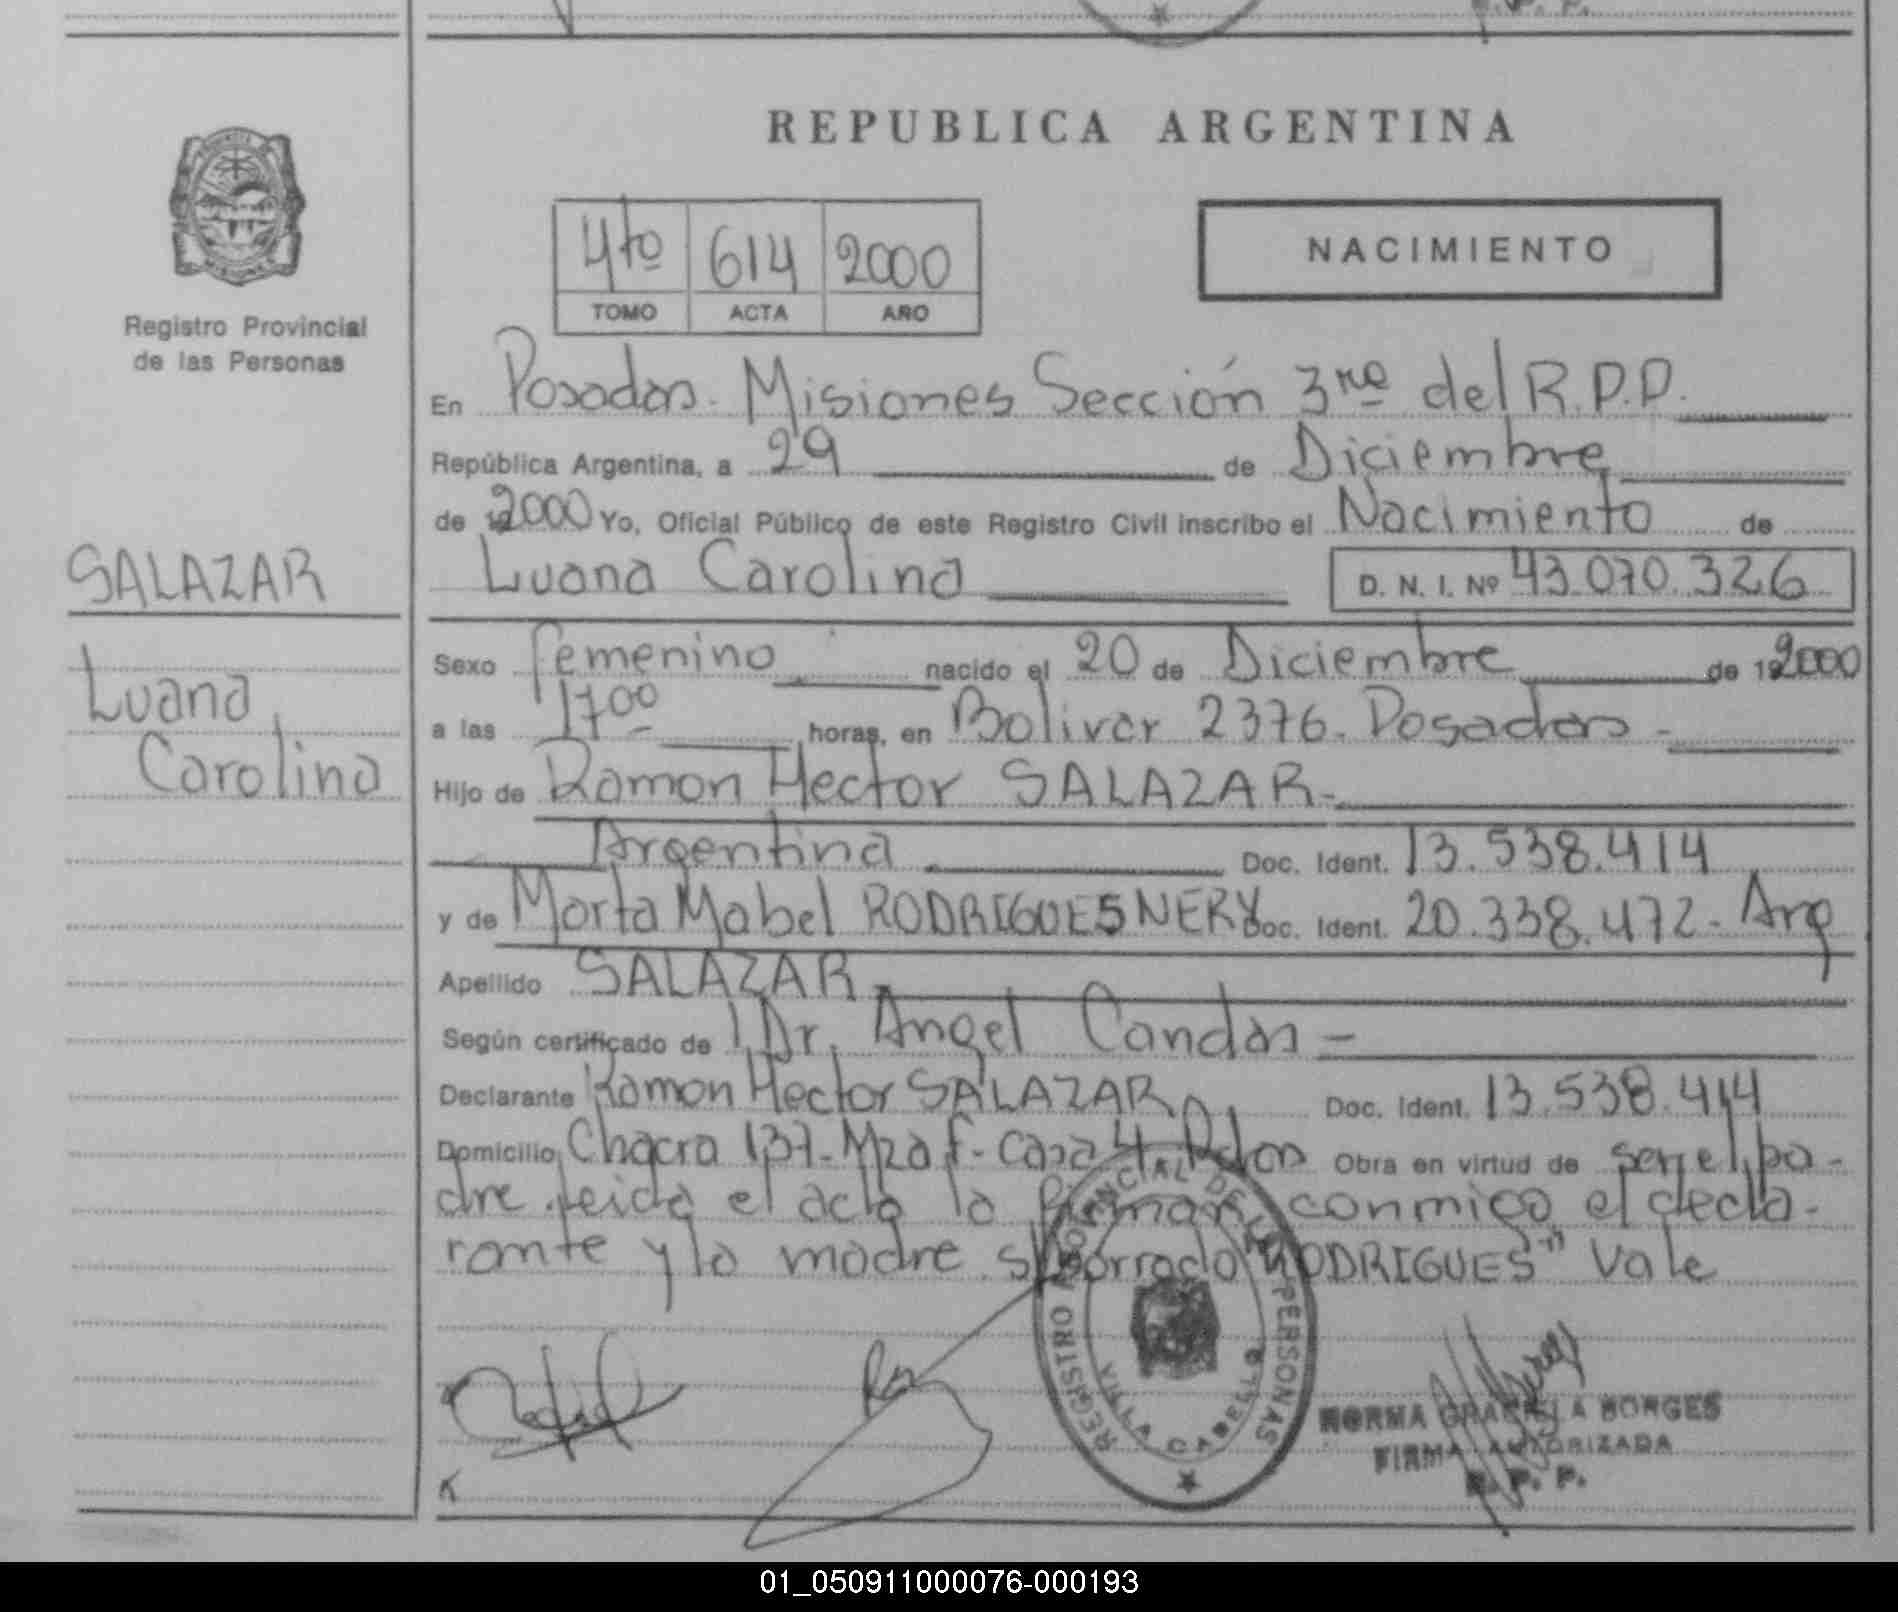 REPUBLICA ARGENTINA
4to 614 2000
TOMO ACTA AÑO
NACIMIENTO
Registro Provincial
de las Personas
SALAZAR
Luana
Carolina
En Posadas. Misiones Sección 3ra del R.P.P.
República Argentina, a 29 de Diciembre
de 2000 Yo, Oficial Público de este Registro Civil inscribo el Nacimiento de
Luana Carolina D. N. I. Nº 43.070.326
Sexo femenino nacido el 20 de Diciembre de 2000
a las 1700 horas, en Bolivar 2376. Posadas -
Hijo de Ramon Hector SALAZAR-
Argentina Doc. Ident. 13.538.414
y de Marta Mabel RODRIGUES NERY Doc. Ident. 20.338.472- Arg
Apellido SALAZAR
Según certificado de Dr. Angel Candas -
Declarante Ramon Hector SALAZAR Doc. Ident. 13.538.414
Domicilio Chacra 137-Mza f- casa 4 Pdas Obra en virtud de ser el pa-
dre leida el acta la firman conmigo el decla-
rante y la madre s/borrado "RODRIGUES" Vale
REGISTRO PROVINCIAL DE LAS PERSONAS
VILLA CABELLO
NORMA GRACIELA BORGES
FIRMA AUTORIZADA
R. P. P.
01_050911000076-000193